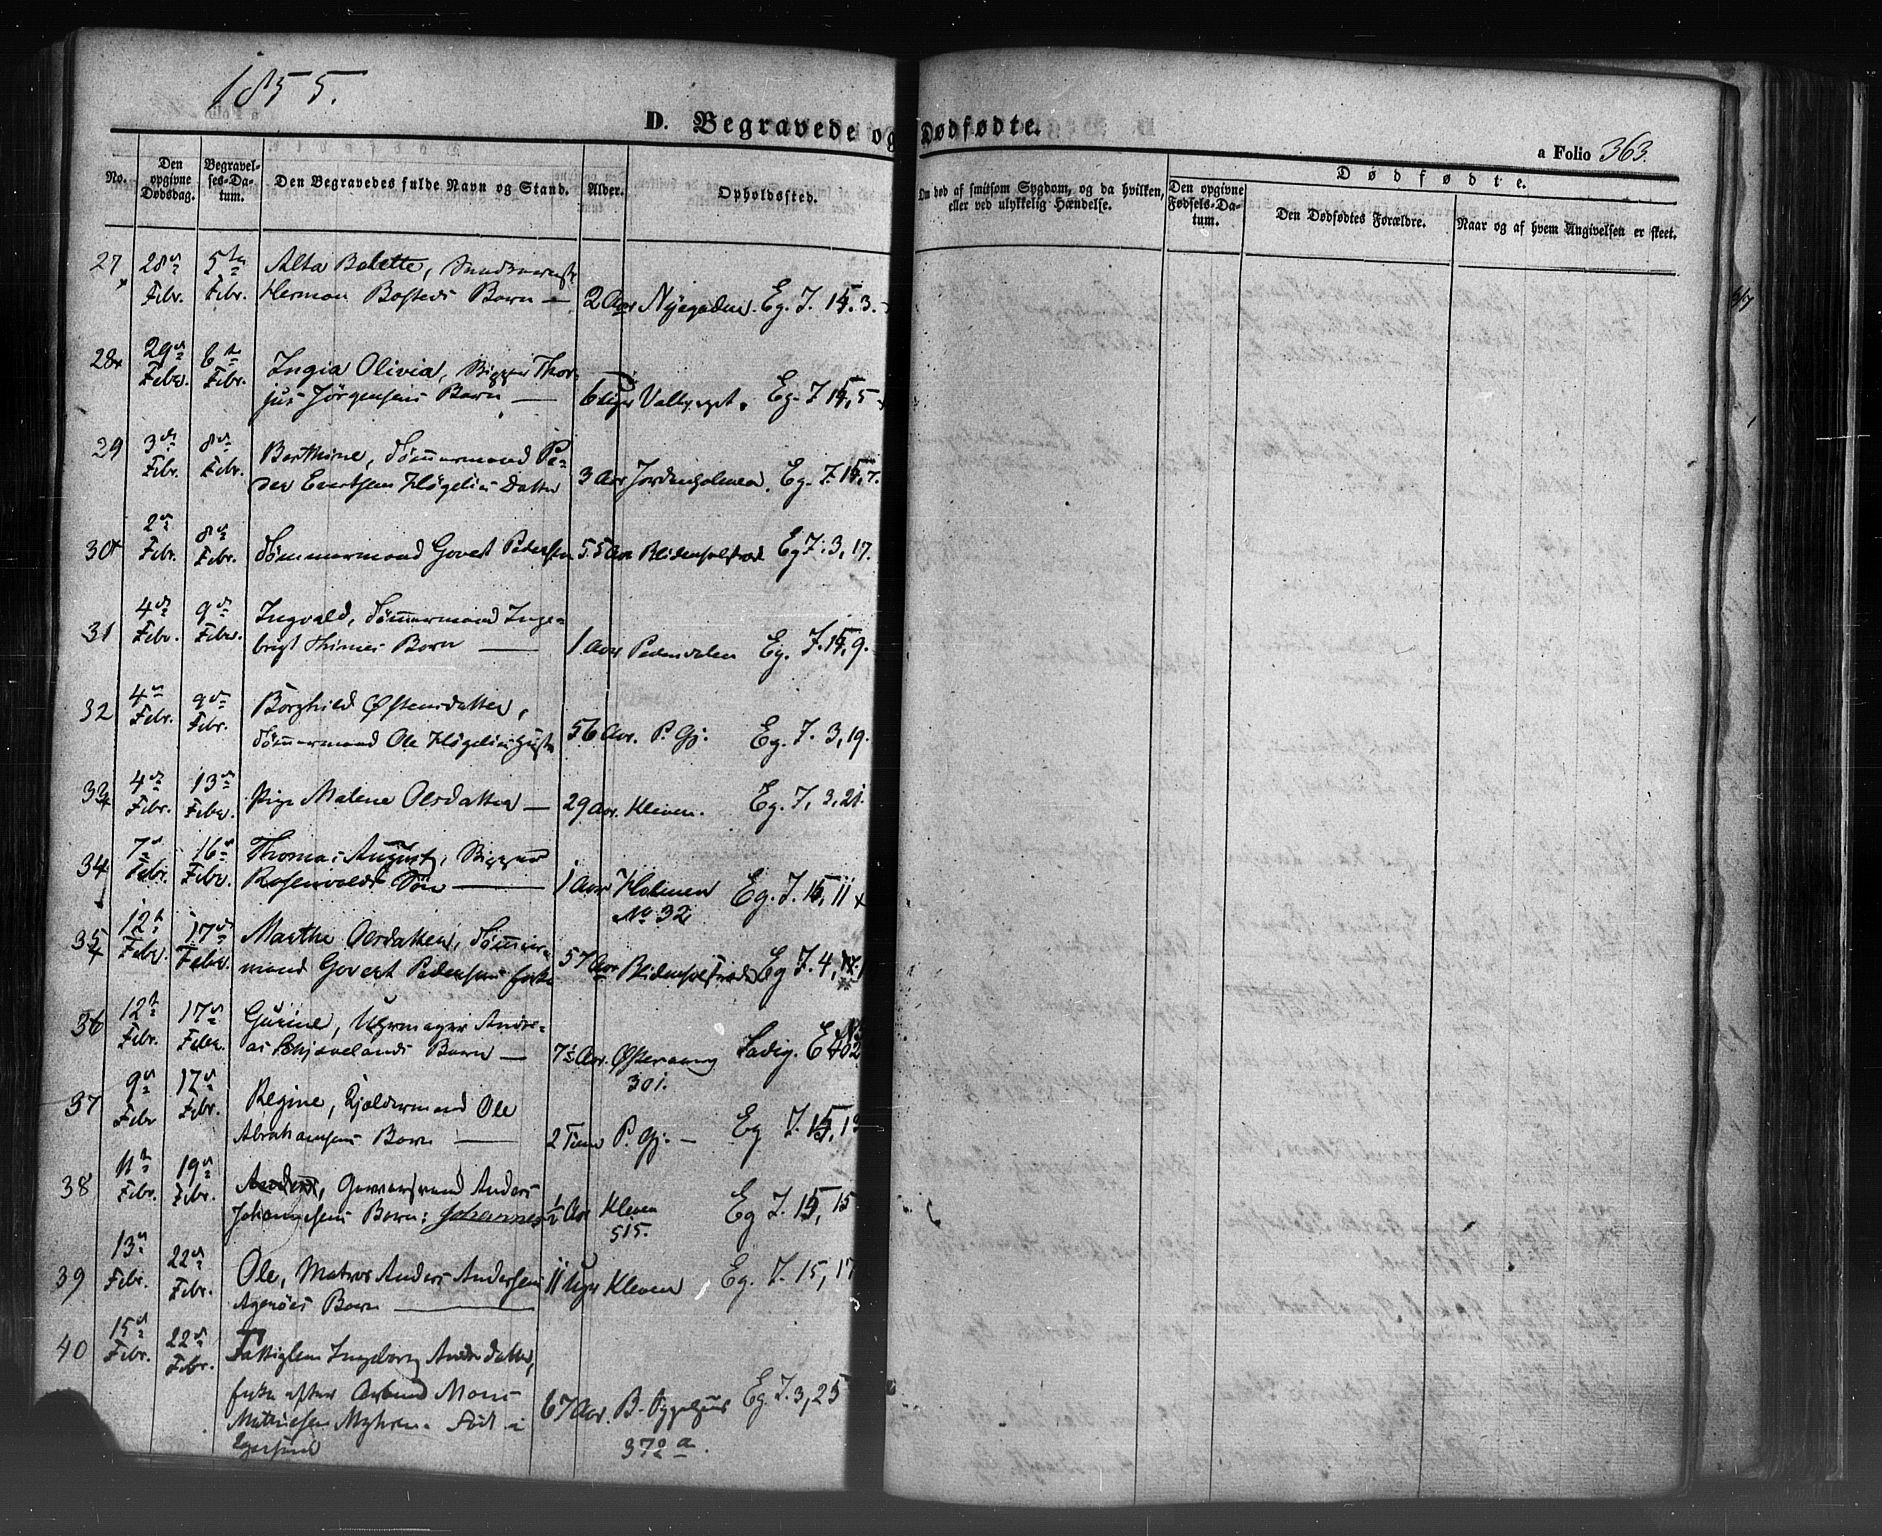 1855.
D. Begravede og Dødfødte.
a Folio 363.
No.
Den opgivne Dødsdag.
Begravel-
ses-Da-
tum.
Den Begravedes fulde Navn og Stand.
Alder.
Opholdssted.
Om død af smitsom Sygdom, og da hvilken,
eller ved ulykkelig Hændelse.
Dødfødte.
Den opgivne
Fødsels-Da-
tum.
Den Dødfødtes Forældre.
Naar og af hvem Angivelsen er skeet.
27 28de Febr. 5te Febr. Alta Bolette,
Herman Bosteds Barn — 2 Aar Nyegaden. Eg. J. 15. 3.
28 29de Febr. 6te Febr. Ingia Olivia, Bygger Thor-
jus Jörgensens Barn — 6 Uger Valberget. Eg. J 15, 5
29 3de Febr. 8de Febr. Berthine, Tömmermand Pe-
der Evertsen Högelies Datter 3 Aar Jordenholmen. Eg. J. 15, 7.
30 2de Febr. 8de Febr. Tömmermand Govert Pedersen 55 Aar Blidensolstræd Eg J. 3, 17.
31 4de Febr. 9de Febr. Ingvald, Tömmermand Inge-
brigt Thimes Barn — 1 Aar Pedersdalen Eg. J. 15, 9.
32 4de Febr. 9de Febr. Borghild Østensdatter,
Tömmermand Ole Högelies Hustr 56 Aar. P. Gj. Eg. J. 3, 19.
33 4de Febr. 13de Febr. Pige Malene Olsdatter — 29 Aar. Kleven. Eg. J. 3, 21.
34 7de Febr. 16de Febr. Thomas August, Bygger
Rosenvoldt Sön — 1 Aar Holmen Eg. J. 15, 11
No 32
35 12te Febr. 17de Febr. Marthe Olsdatter, Tömmer-
mand Govert Pedersens Enke 57 Aar Blidensolstræd Eg J. 4,
36 12te Febr. 17de Febr. Gurine, Uhrmager Ander-
as Skjævelands Barn — 7½ Aar. Østervaag Ladig. E 402
301.
37 9de Febr 17de Febr. Regine, Kjældermand Ole
Abrahamsens Barn — 2 Timer P. Gj. — Eg J. 15, 13
38 11te Febr. 19de Febr. Anders, Garversvend Anders
Johannesens Barn: Johannes ½ Aar Kleven Eg J. 15, 15
515.
39 13de Febr. 22de Febr. Ole, Matros Anders Andersen
Ageröes Barn — 11 Uger Kleven Eg. J. 15, 17
40 15de Febr. 22de Febr. Fattiglem Ingeborg Andersdatter,
Enke efter Mons
Mathiesen Myhren. Föd i 67 Aar. B. Eg. J. 3, 25
Egersund 372 a.